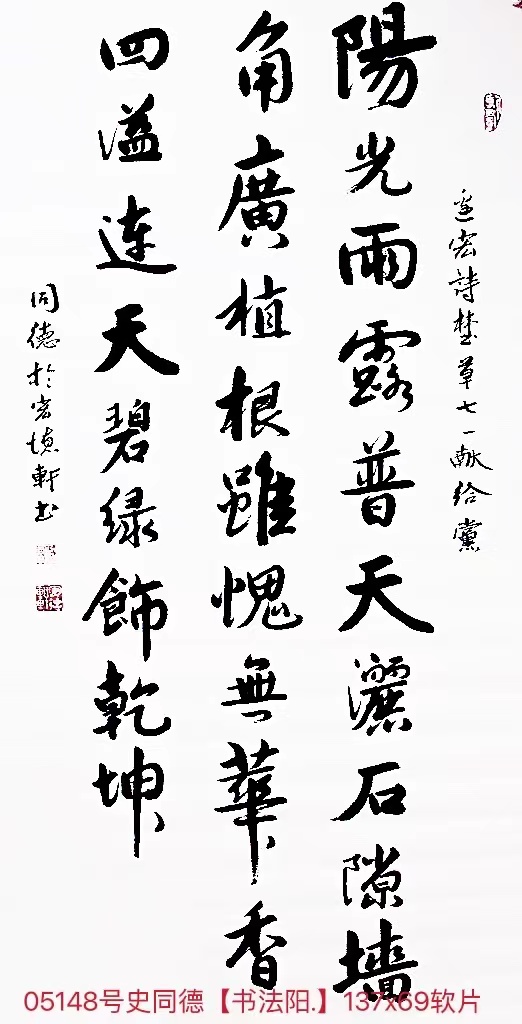 宏詩㙡草七一献给黨
陽光雨露普天灑石隙墙
角廣植根雖愧無華香
四溢连天碧绿飾乾坤
同德於宏憶軒书
05148号史同德【书法阳.】137x69软片